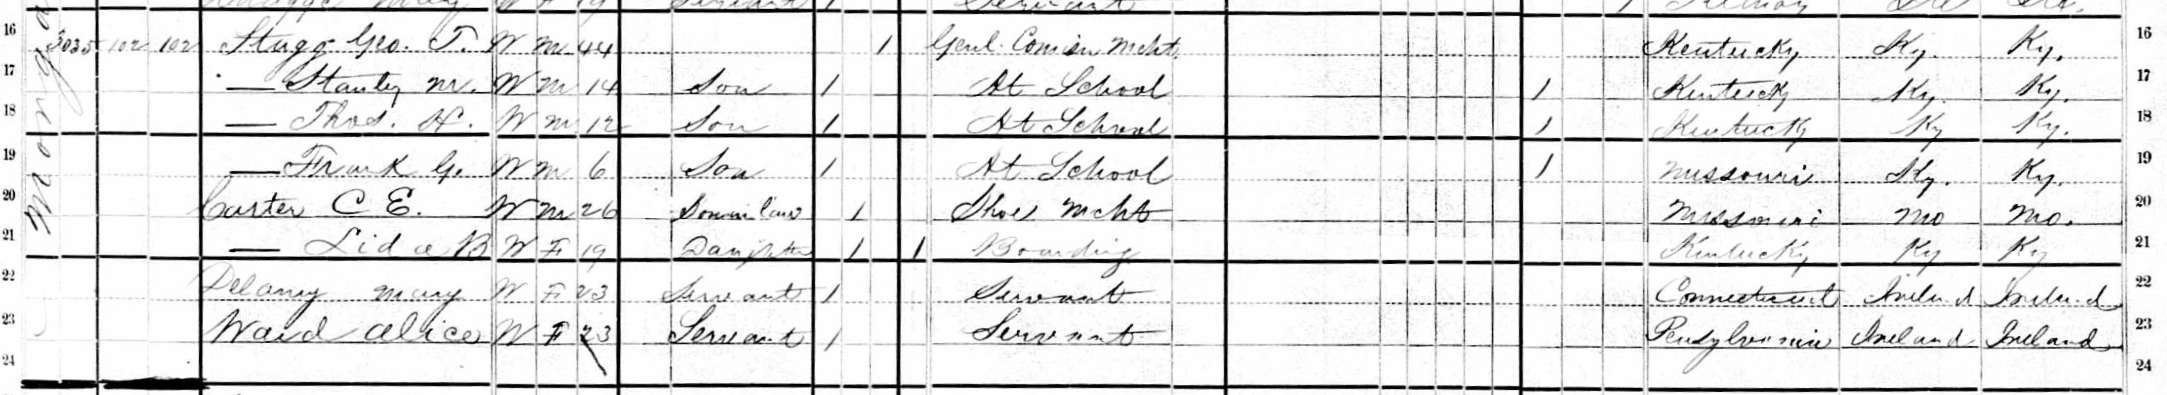 Servant 1 Servant
16 3035 102 102 Stugg Geo. T. W M 44 1 Genl. Comisn Mcht. Kentucky Ky. Ky. 16
17 — Stanley M. W M 14 Son 1 At School 1 Kentucky Ky. Ky. 17
18 — Thos. H. W M 12 Son 1 At School 1 Kentucky Ky Ky. 18
19 — Frank G. W M 6 Son 1 At School 1 Missouri Ky. Ky. 19
20 Carter C E. W M 26 Soninlaw 1 Shoe Mcht Missouri Mo Mo. 20
21 — Lida B W F 19 Daughter 1 1 Boarding Kentucky Ky Ky 21
22 Delaney Mary W F 23 Servant 1 Servant Connecticut Ireland Ireland 22
23 Ward Alice W F 23 Servant 1 Servant Pensylvania Ireland Ireland 23
24 24